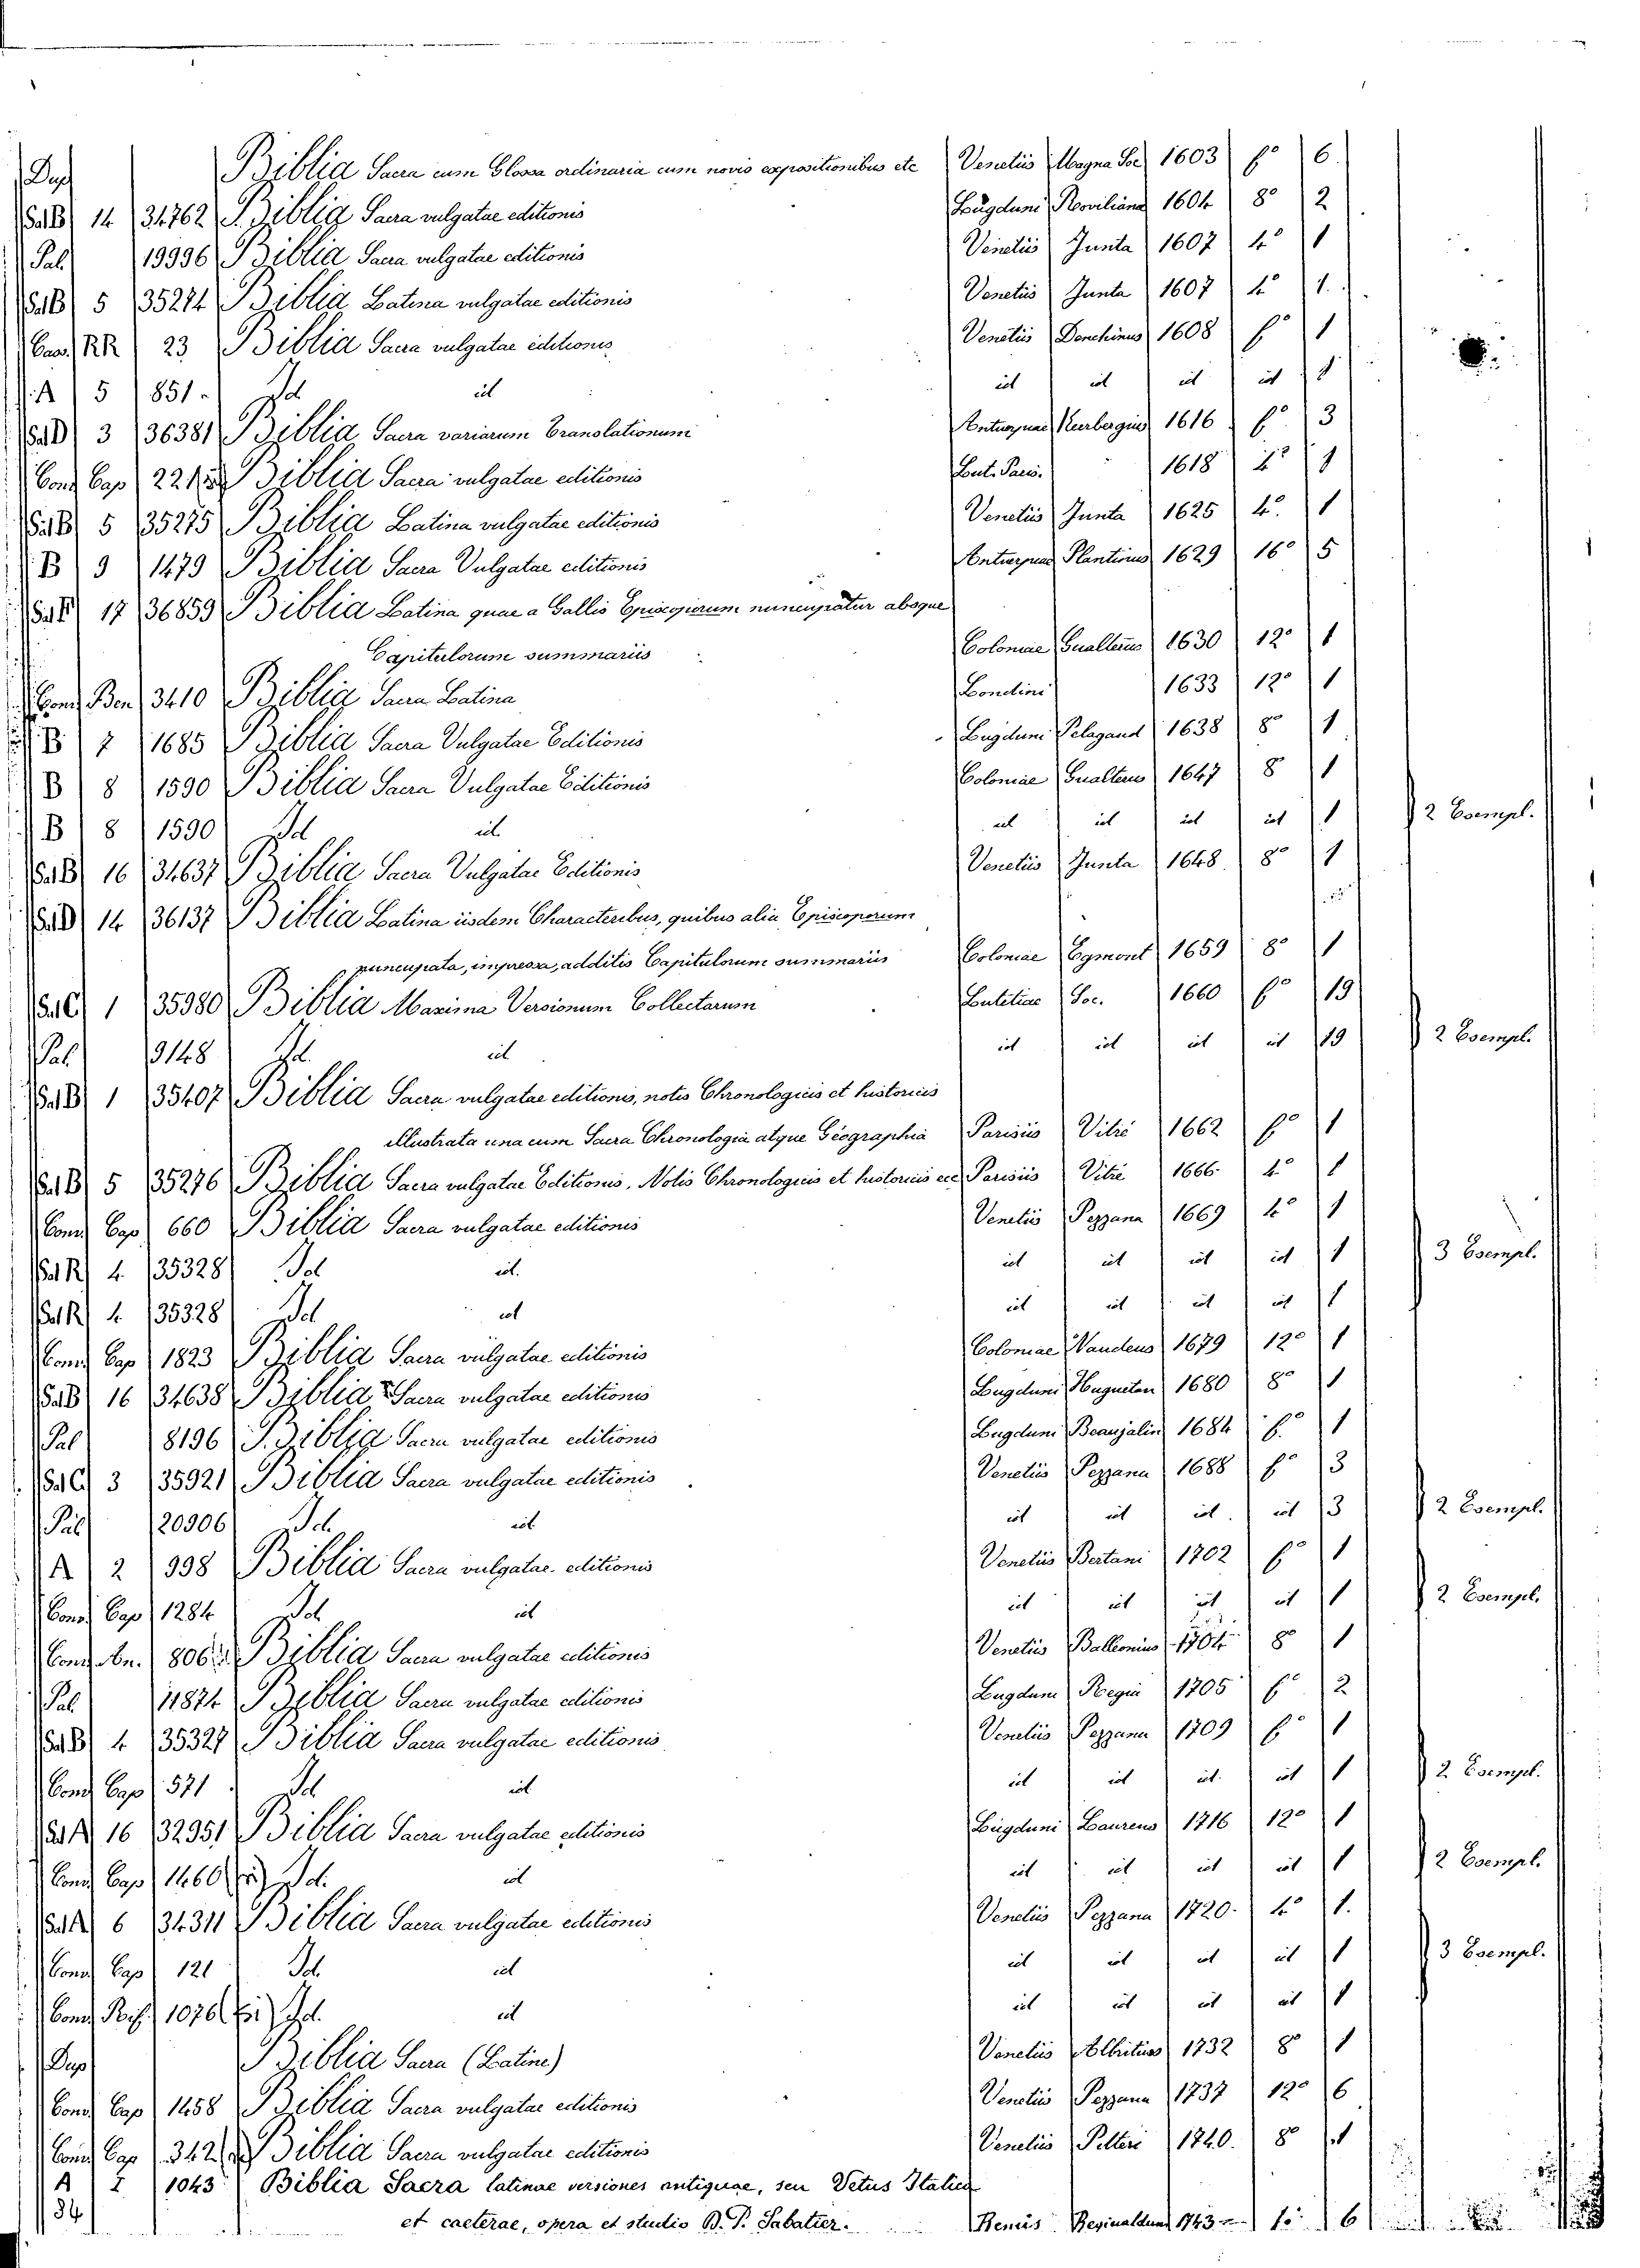 Dup Biblia Sacra cum Glossa ordinaria cum novis expositionibus etc Venetiis Magna Soc 1603 f° 6.
Sal B 14 34762 S. Biblia Sacra vulgatae editionis Lugduni Roviliana 1604 8° 2
Pal. 19996 Biblia Sacra vulgatae editionis Venetiis Junta 1607 4° 1
Sal B 5 35274 Biblia Latina vulgatae editionis Venetiis Junta 1607 4° 1.
RR 23 Biblia Sacra vulgatae editionis Venetiis Deuchinus 1608 f° 1
A 5 851. Id id id id id id 1
Sal D 3 36381 Biblia Sacra variarum Translationum Antuerpiae Keerbergius 1616 f° 3
Conv Cap Biblia Sacra vulgatae editionis Lut. Paris. 1618 4° 1
Sal B 5 35275 Biblia Latina vulgatae editionis Venetiis Junta 1625 4°. 1
B 9 1479 Biblia Sacra Vulgatae editionis Antuerpiae Plantinus 1629 16° 5
17 36859 Biblia Latina quae a Gallis Episcoporum nuncupatur absque
Capitulorum summariis Coloniae Gualterus 1630 12° 1
Conv Ben 3410 Biblia Sacra Latina Londini 1633 12° 1
B 7 1685 Biblia Sacra Vulgatae Editionis Lugduni Pelagaud 1638 8° 1
B 8 1590 Biblia Sacra Vulgatae Editionis Coloniae Gualterus 1647 8° 1
B 8 1590 Id id. id id id id 1 2 Esempl.
Sal B 16 34637 Biblia Sacra Vulgatae Editionis Venetiis Junta 1648 8° 1
Sal D 14 36137 Biblia Latina iisdem Characteribus, quibus alia Episcoporum
nuncupata, impressa, additis Capitulorum summariis Coloniae Egmont 1659 8° 1
Sal C 1 35980 Biblia Maxima Versionum Collectarum Lutetiae Soc. 1660 f° 19
Pal. 9148 Id. id id id id id 19 2 Esempl.
Sal B 1 35407 Biblia Sacra vulgatae editionis, notis Chronologicis et historicis
illustrata una cum Sacra Chronologia atque Geographia Parisiis Vitré 1662 f° 1
Sal B 5 35276 Biblia Sacra vulgatae Editionis, Notis Chronologicis et historicis ecc Parisiis Vitré 1666 4° 1
Conv Cap 660 Biblia Sacra vulgatae editionis Venetiis Pezzana 1669 4° 1
Sal R 4 35328 Id id. id id id id 1 3 Esempl.
Sal R 4 35328 Id id id id id id 1
Conv Cap 1823 Biblia Sacra vulgatae editionis Coloniae Naudeus 1679 12° 1
Sal B 16 34638 Biblia Sacra vulgatae editionis Lugduni Huguetan 1680 8° 1
Pal 8196 S. Biblia Sacra vulgatae editionis Lugduni Beaujalin 1684 f°. 1
Sal C 3 35921 Biblia Sacra vulgatae editionis Venetiis Pezzana 1688 f° 3
Pal 20906 Id. id id id id id 3 2 Esempl.
A 2 998 Biblia Sacra vulgatae editionis Venetiis Bertani 1702 f° 1
Conv Cap 1284 Id id id id id id 1 2 Esempl.
Conv 806 Biblia Sacra vulgatae editionis Venetiis Balleonius 1704 8° 1
Pal 11874 Biblia Sacra vulgatae editionis Lugduni Regia 1705 f° 2
Sal B 4 35327 Biblia Sacra vulgatae editionis Venetiis Pezzana 1709 f° 1
Conv Cap 571 Id id id id id. id 1 2 Esempl.
Sal A 16 32951 Biblia Sacra vulgatae editionis Lugduni Laurens 1716 12° 1
Conv Cap 1460 Id. id id id id id 1 2 Esempl.
Sal A 6 34311 Biblia Sacra vulgatae editionis Venetiis Pezzana 1720. 4° 1.
Conv Cap 121 Id. id id id id id 1 3 Esempl.
Conv Rif. 1076 Id. id id id id id 1
Dup Biblia Sacra (Latine) Venetiis Albritius 1732 8° 1
Conv Cap 1458 Biblia Sacra vulgatae editionis Venetiis Pezzana 1737 12° 6
Conv Cap 342 Biblia Sacra vulgatae editionis Venetiis Pitteri 1740. 8° 1
A 1 1043 Biblia Sacra latinae versiones antiquae, seu Vetus Italica
34 et caeterae, opera et studio D. P. Sabatier. Remis Reginaldum 1743 f°: 6